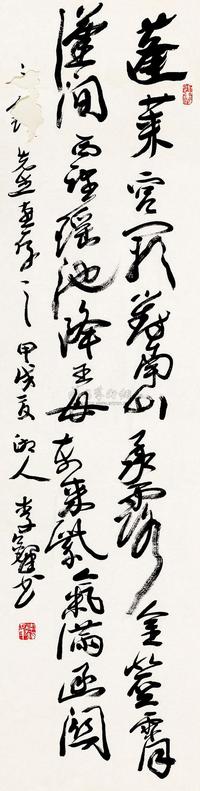 蓬莱宫阙对南山承露金茎霄
汉间西望瑶池降王母东来紫气满函关
先生惠存之甲戌夏湖人李铎书